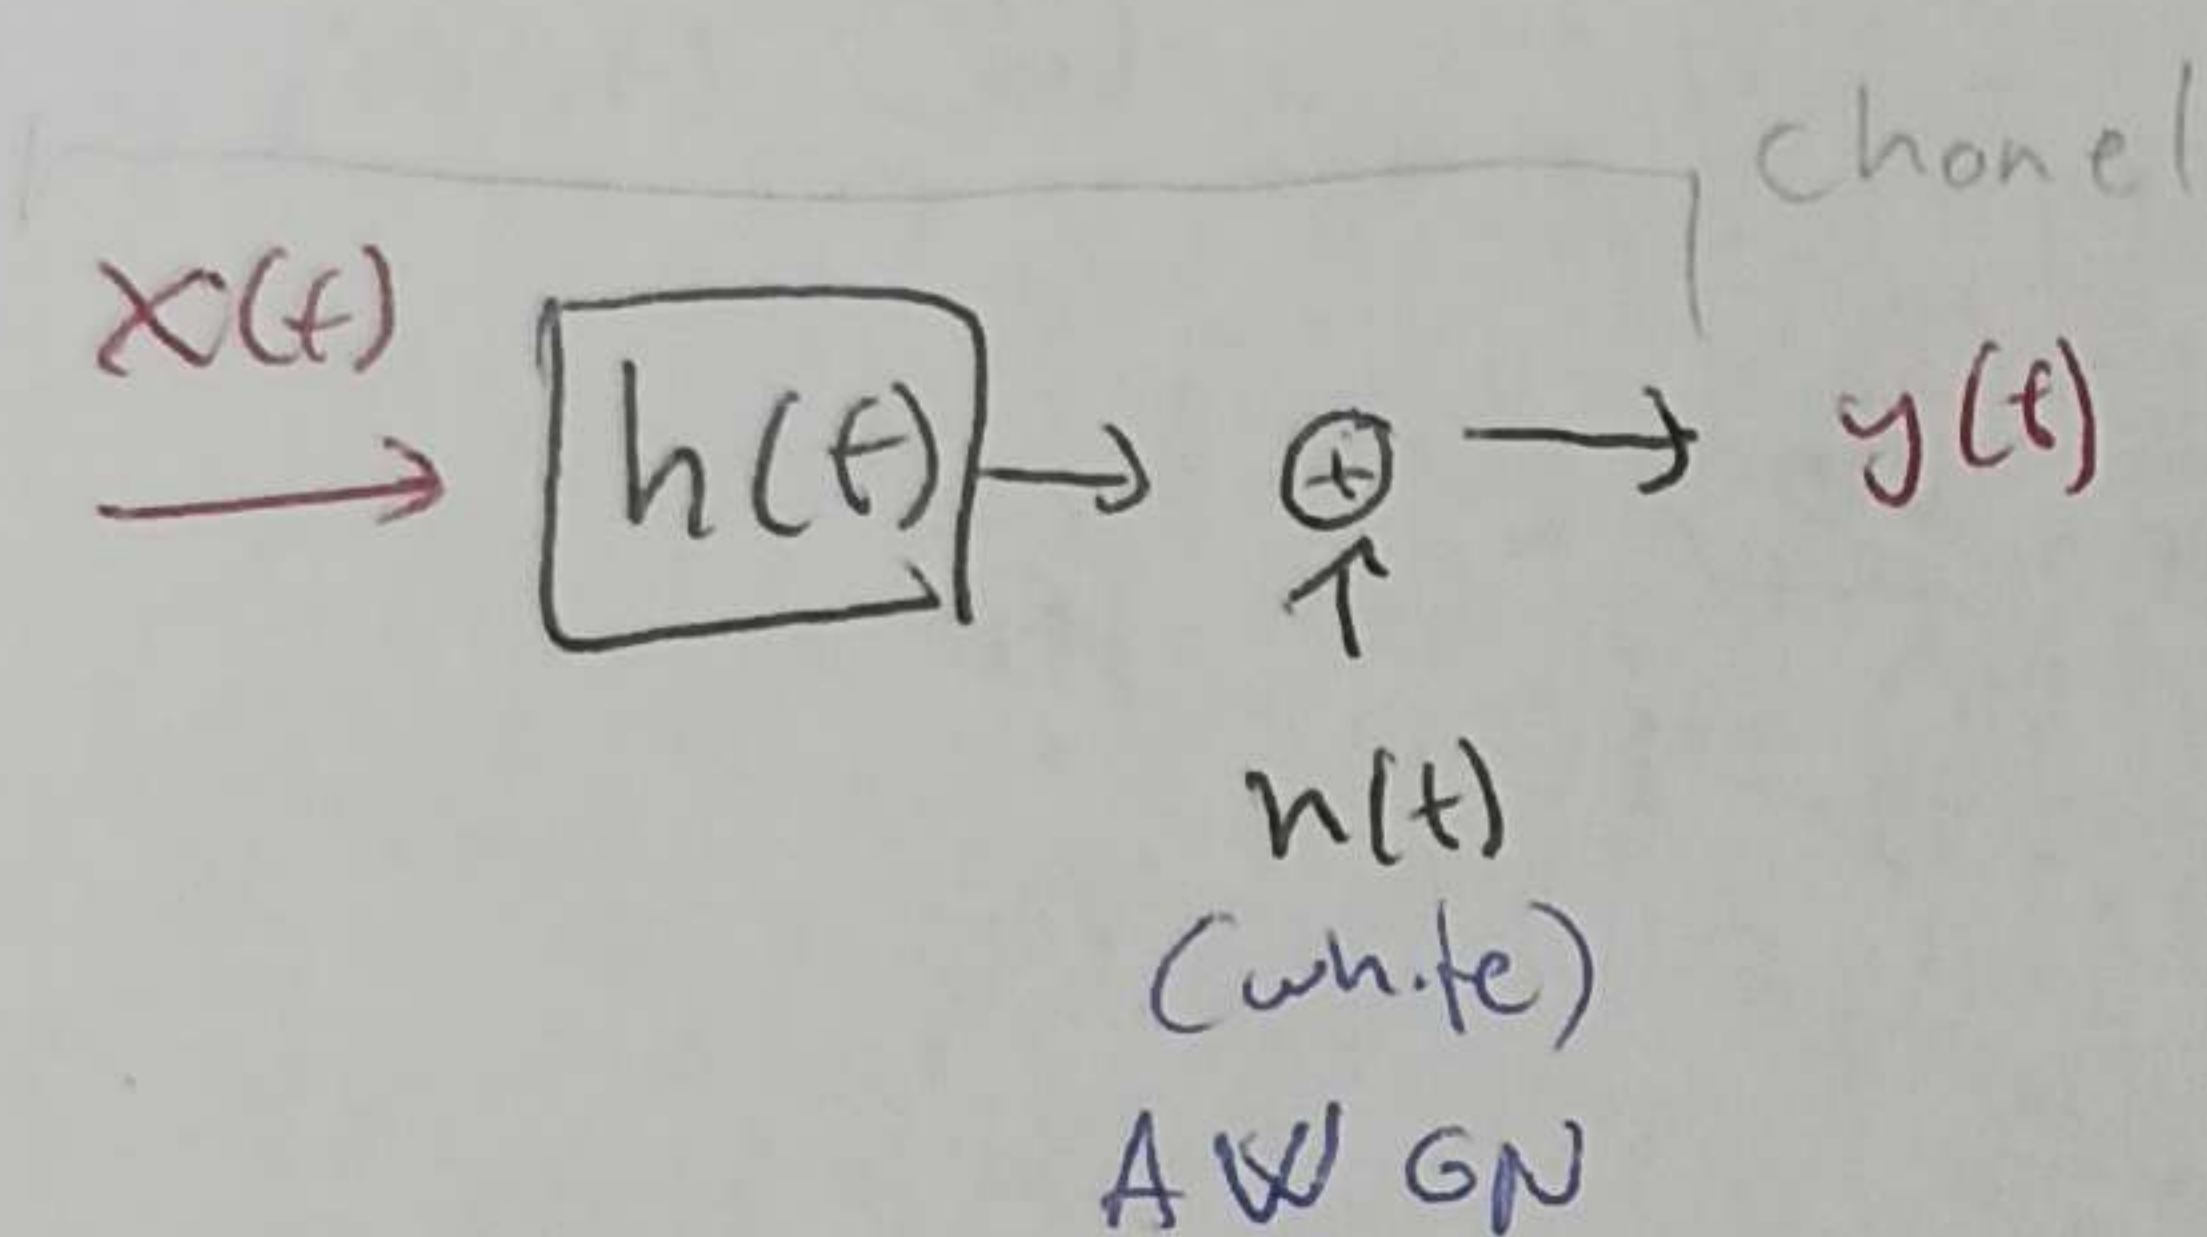 chonel
x(t)
h(t)
+
y(t)
n(t)
(white)
AWGN